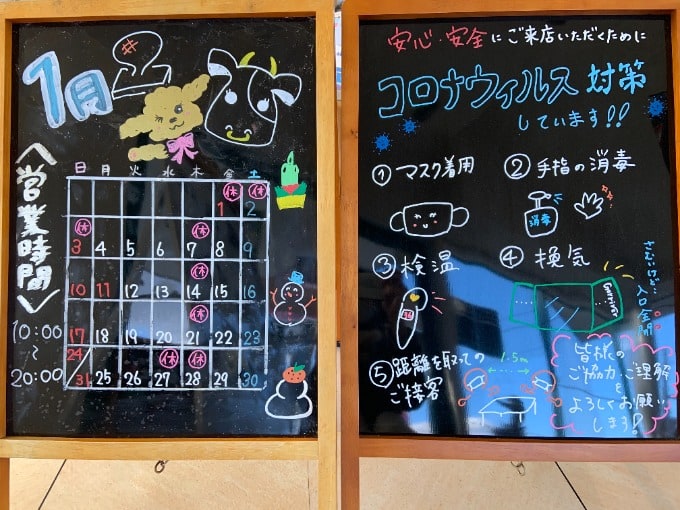 1月
<営業時間>
10:00
~
20:00
日 月 火 水 木 金 土
休 休
1 2
休 休
3 4 5 6 7 8 9
休
10 11 12 13 14 15 16
休
17 18 19 20 21 22 23
24 休 休
31 25 26 27 28 29 30
安心・安全にご来店いただくために
コロナウィルス対策
しています!!
① マスク着用
② 手指の消毒
消毒
③ 検温
④ 換気
さむいけど…
入口全開
⑤ 距離を取っての
ご接客
1.5m
皆様の
ご協力、ご理解
を
よろしくお願い
します!